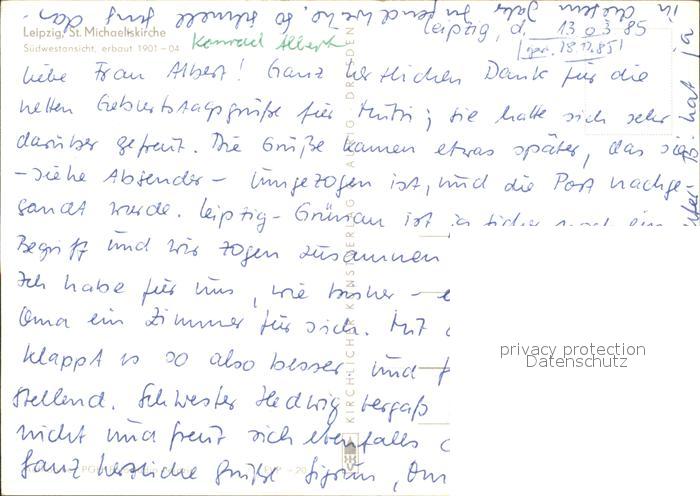 Leipzig, St. Michaeliskirche
Südwestansicht, erbaut 1901–04
Konrad Albert
Leipzig, d. 13 03 85
liebe Frau Albert! Ganz herzlichen Dank für die
netten Geburtstagsgrüße für Mutti; sie hatte sich sehr
darüber gefreut. Die Grüße kamen etwas später, das sie
– siehe Absender – umgezogen ist, und die Post nachge-
sandt wurde. Leipzig-Grünau ist
Begriff und wir zogen zusammen
Ich habe für uns, wie bisher –
Oma ein Zimmer für sich. Mit
klappt es so also besser und
stellend. Schwester Hedwig vergaß
nicht und freut sich ebenfalls
Ganz herzliche Grüße Sigrun,
in diesem Jahr
so schnell
KIRCHLICHER KUNSTVERLAG DRESDEN
privacy protection
Datenschutz